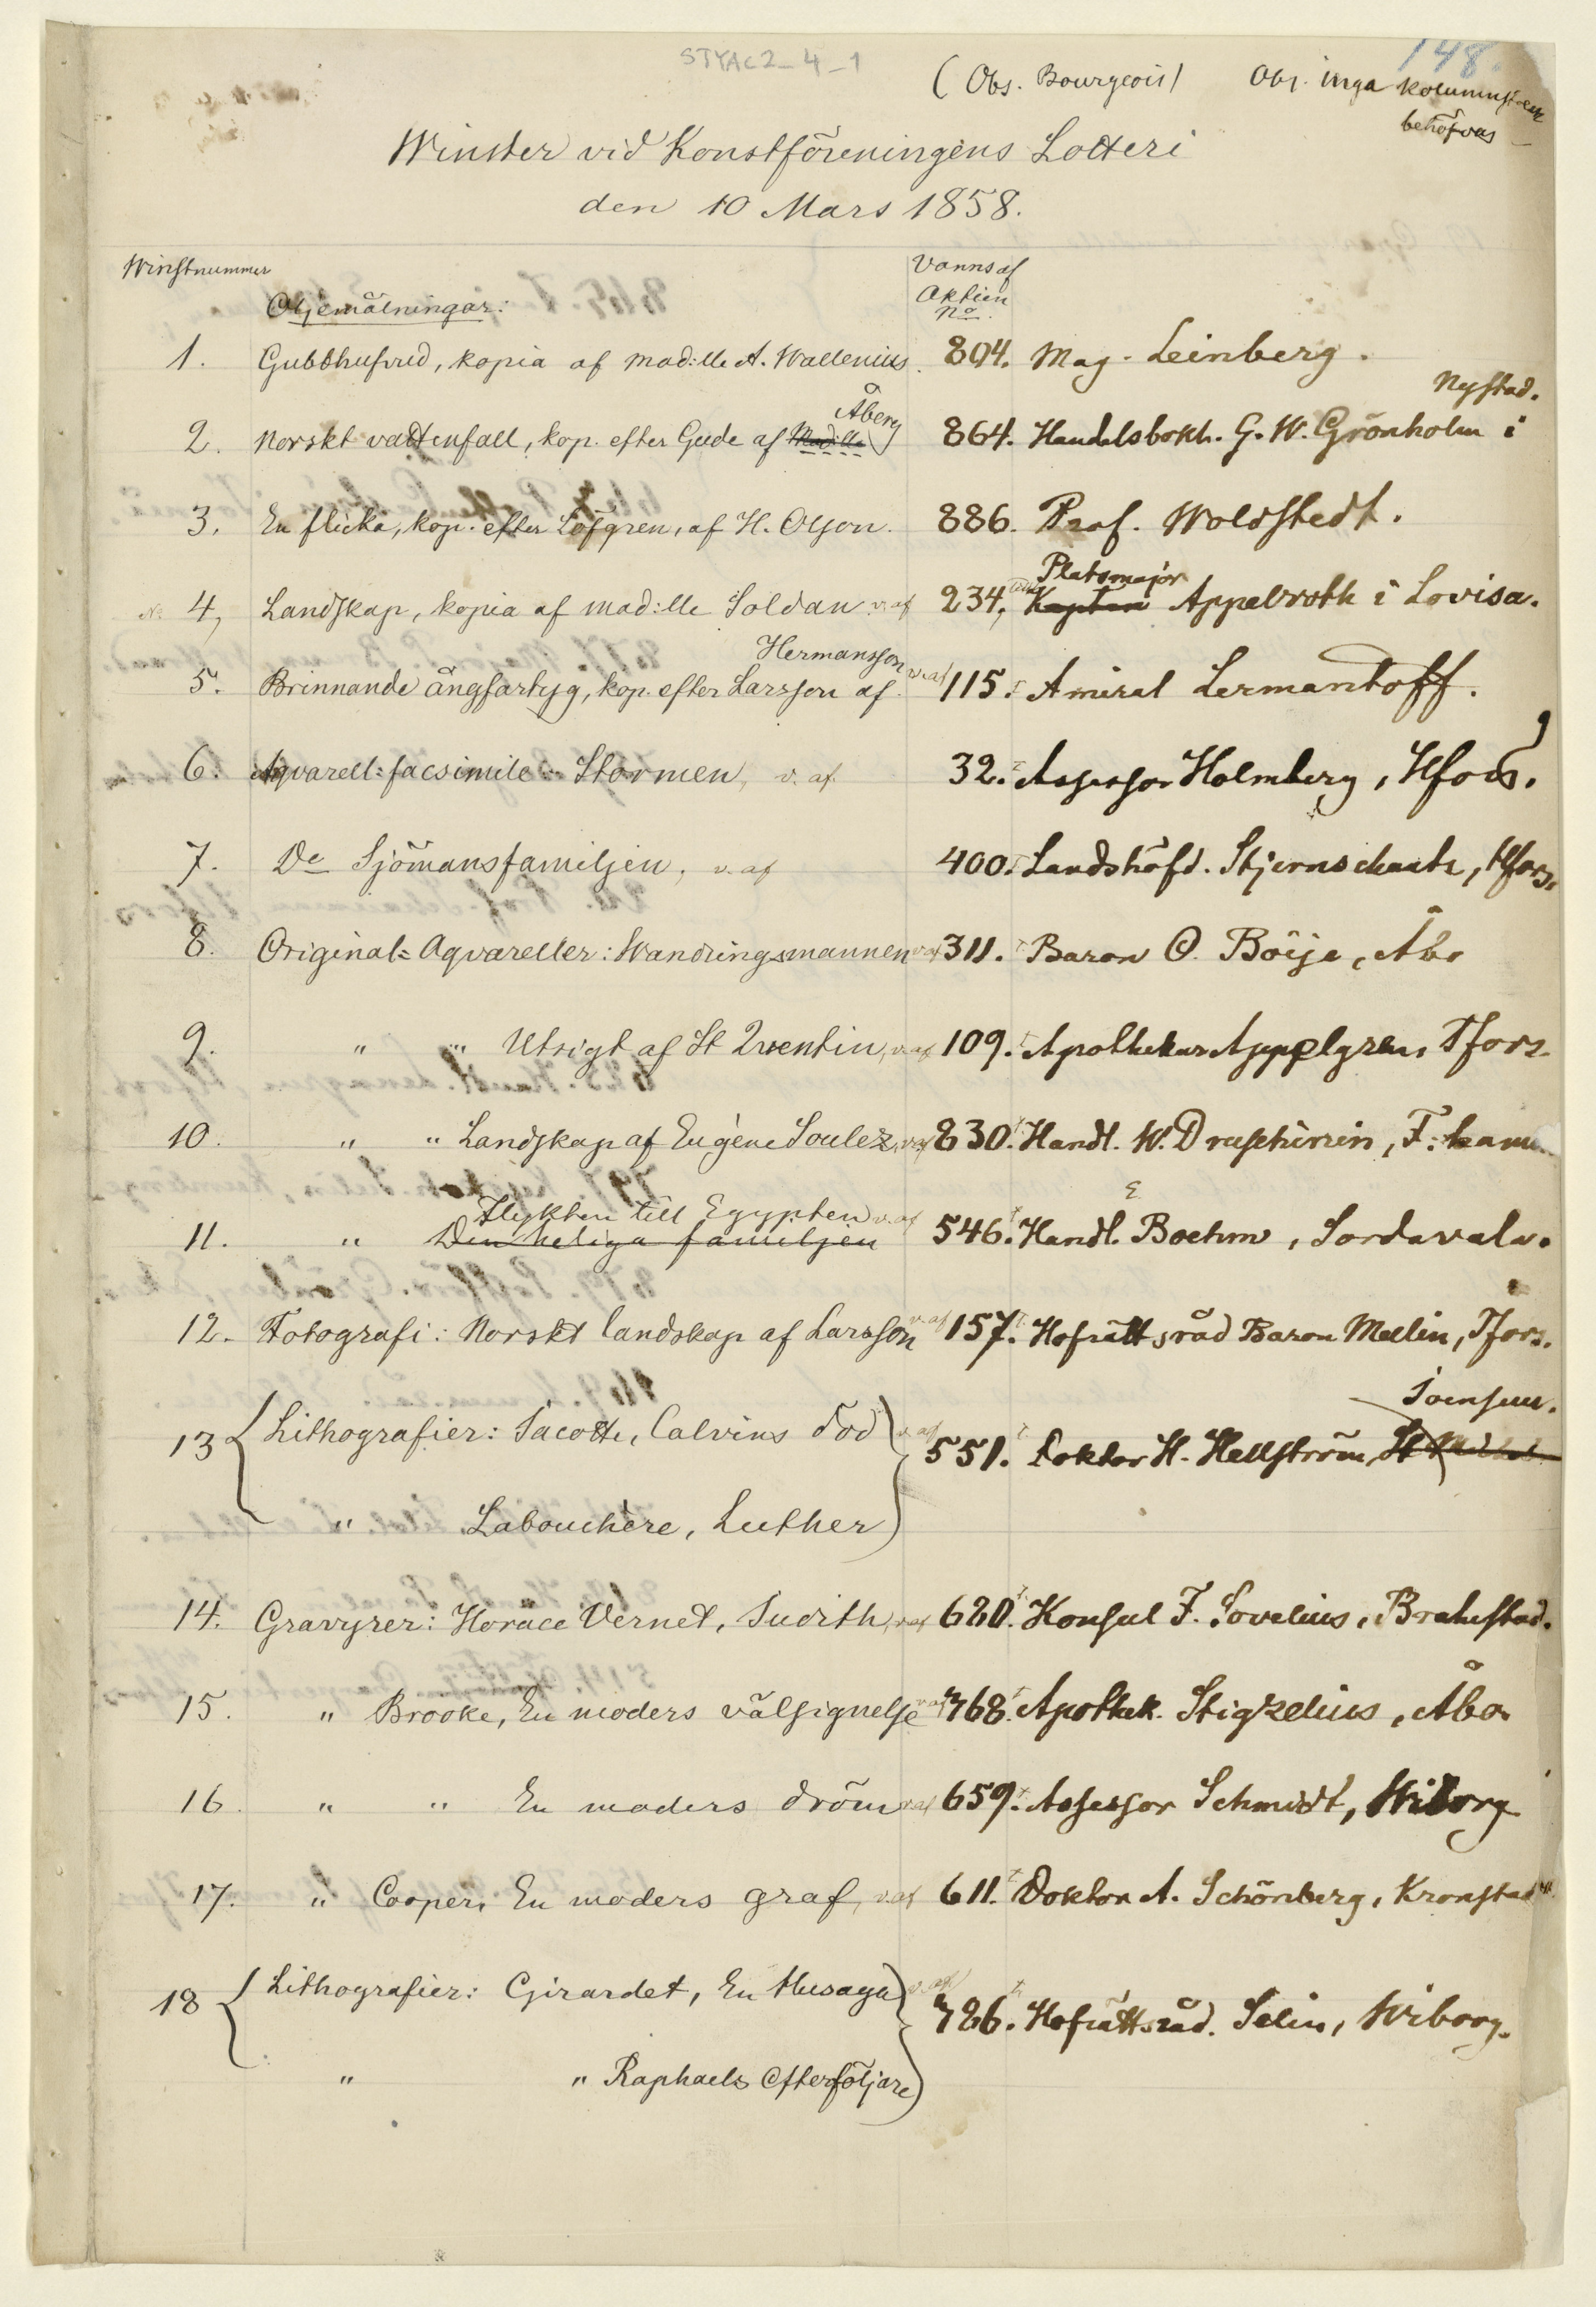 148.
STYAC2_4_1
(Obs. Bourgeois) Obs. inga kolumnstreck
behöfvas
Winster vid Konstföreningens Lotteri
den 10 Mars 1858.
Winstnummer
Vanns af
Aktien
No.
Oljemålningar:
1. Gubbhufvud, kopia af mad:lle A. Wallenius. 804. Mag. Leinberg.
Nystad.
Åberg
2. Norskt vattenfall, kop. efter Gude af Mad:lle 864. Handelsbokh. G. W. Grönholm i
3. En flicka, kop. efter Löfgren, af H. Olson. 886. Prof. Woldstedt.
Platsmajor
No 4, Landskap, kopia af mad:lle Soldan v. af 234, Kapten Appelroth i Lovisa.
Hermansson
5. Brinnande ångfartyg, kop. efter Larsson af v. af 115. Amiral Lermantoff.
6. Aqvarell-facsimile: Stormen, v. af 32. Assessor Holmberg, Hfors.
7. Do Sjömansfamiljen, v. af 400. Landshöfd. Stjernschantz, Hfors.
8. Original-Aqvareller: Wandringsmannen v. af 311. Baron O. Böije, Åbo
9. " " Utsigt af St Quentin, v. af 109. Apothekar Appelgren, Tfors.
10. " " Landskap af Eugène Soulez, v. af 830. Handl. W. Druschinin, F:hamn
Flykten till Egypten v. af
E.
11. " Den heliga familjen 546. Handl. Boehm, Sordavala.
12. Fotografi: Norskt landskap af Larsson v. af 157. Hofrättsråd Baron Mellin, Tfors.
Joensuu.
13 Lithografier: Jacotte, Calvins död v. af 551. Doktor H. Hellström, St Michel
" Labouchère, Luther
14. Gravyrer: Horace Vernet, Judith, v. af 680. Konsul F. Sovelius, Brahestad.
15. " Brooke, En moders välsignelse v. af 768. Apothek. Stigzelius, Åbo.
16. " " En moders dröm v. af 659. Assessor Schmidt, Wiborg
17. " Cooper, En moders graf, v. af 611. Doktor A. Schönberg, Kronstadt.
18 Lithografier: Girardet, En Husaga v. af 786. Hofrättsråd. Selin, Wiborg.
" " Raphaels Efterföljare